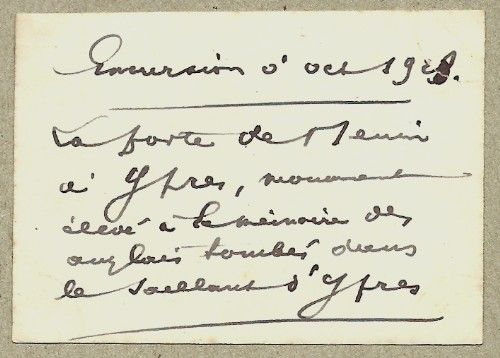 Excursion d'oct 192
La porte de Menin
à Ypres, monument
élevé à la mémoire des
anglais tombés dans
le saillant d'Ypres